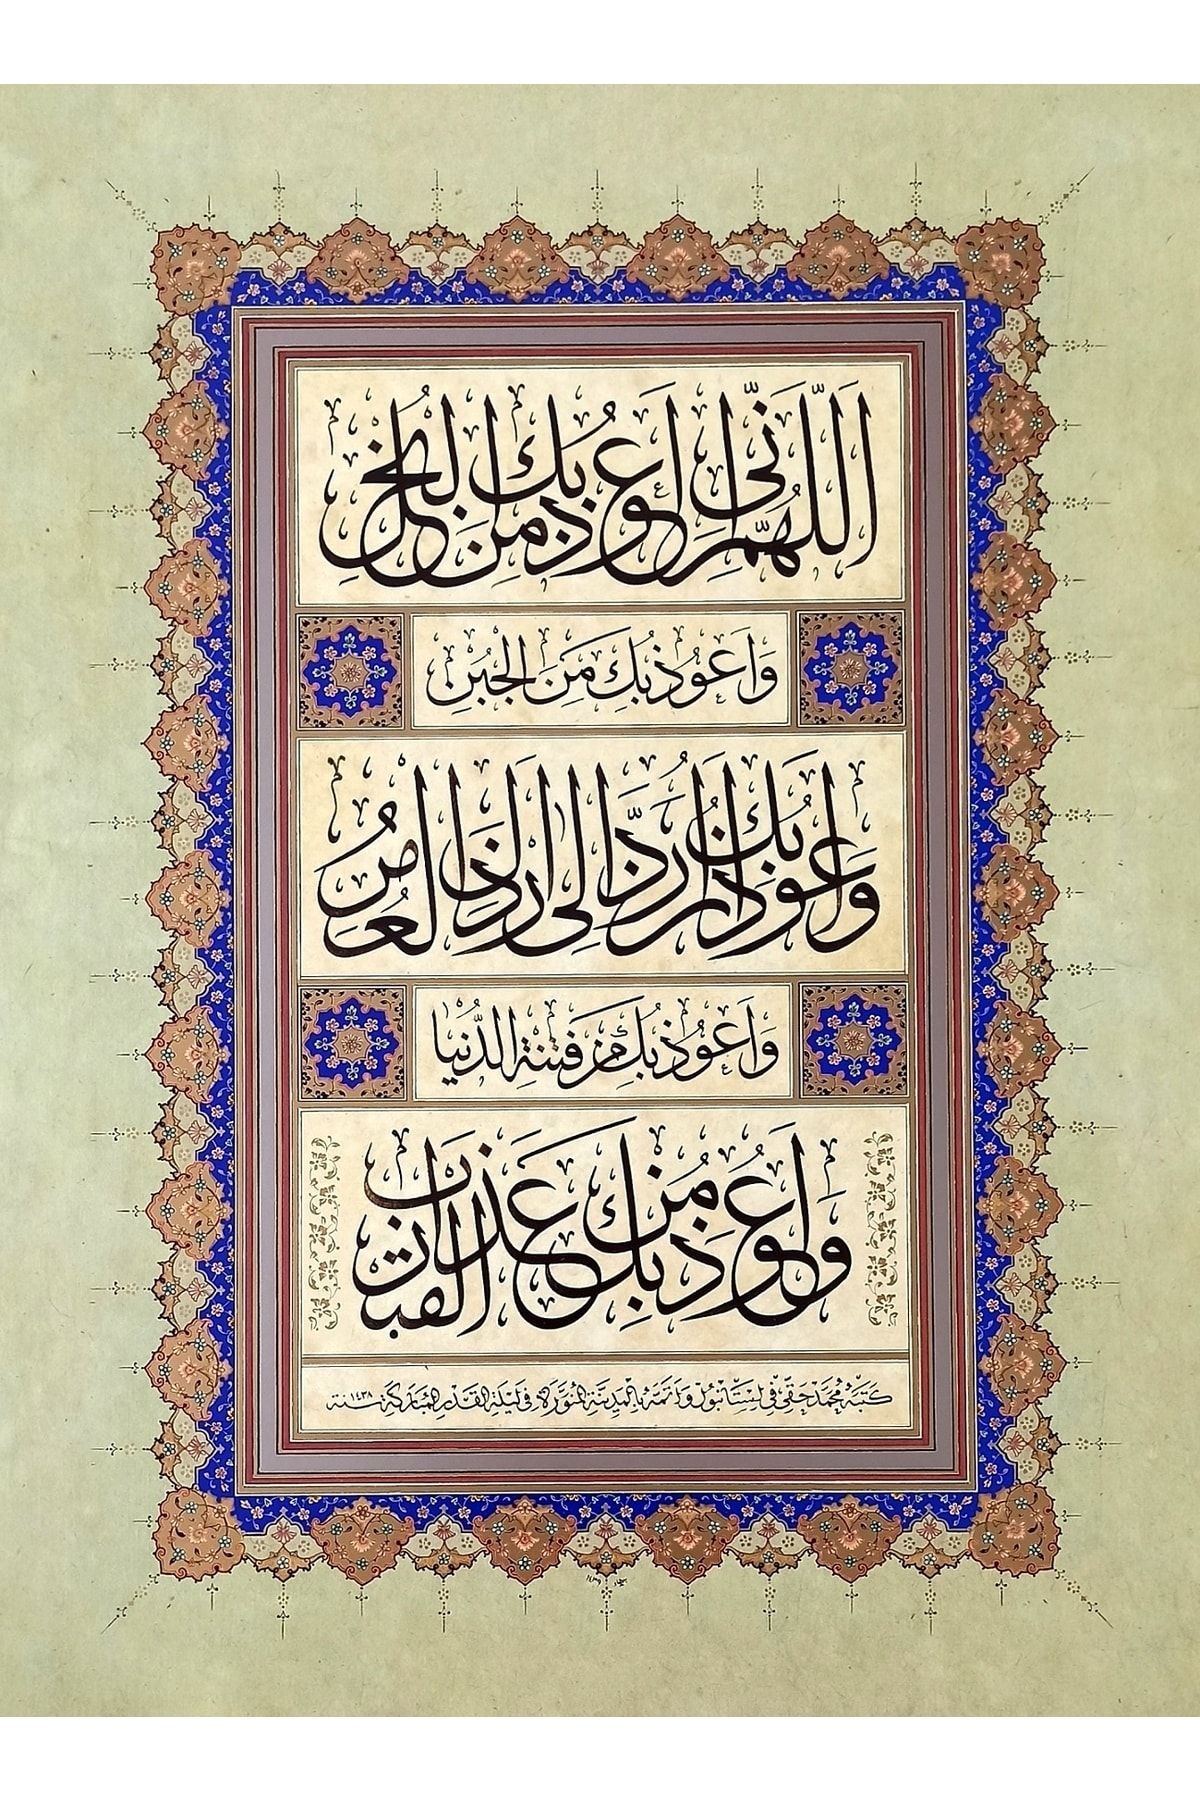 اللّٰهُمَّ إنّي أعوذُ بك من البُخل
وَأعوُذ بُك مَن الجُبنِ
وَأعوُذ بُك أن أُردَّ إلى أرذل العُمُر
وَأعوُذ بُك مَن فتنة الدُّنيا
وَأعوُذ بك مُن عَذاب القبر
كتبهُ مُحمد حقي في إستانبُول وَأتمهُ بالمدينة المنوّرة في ليلة القدر المُباركة سنة ١٤٣٨